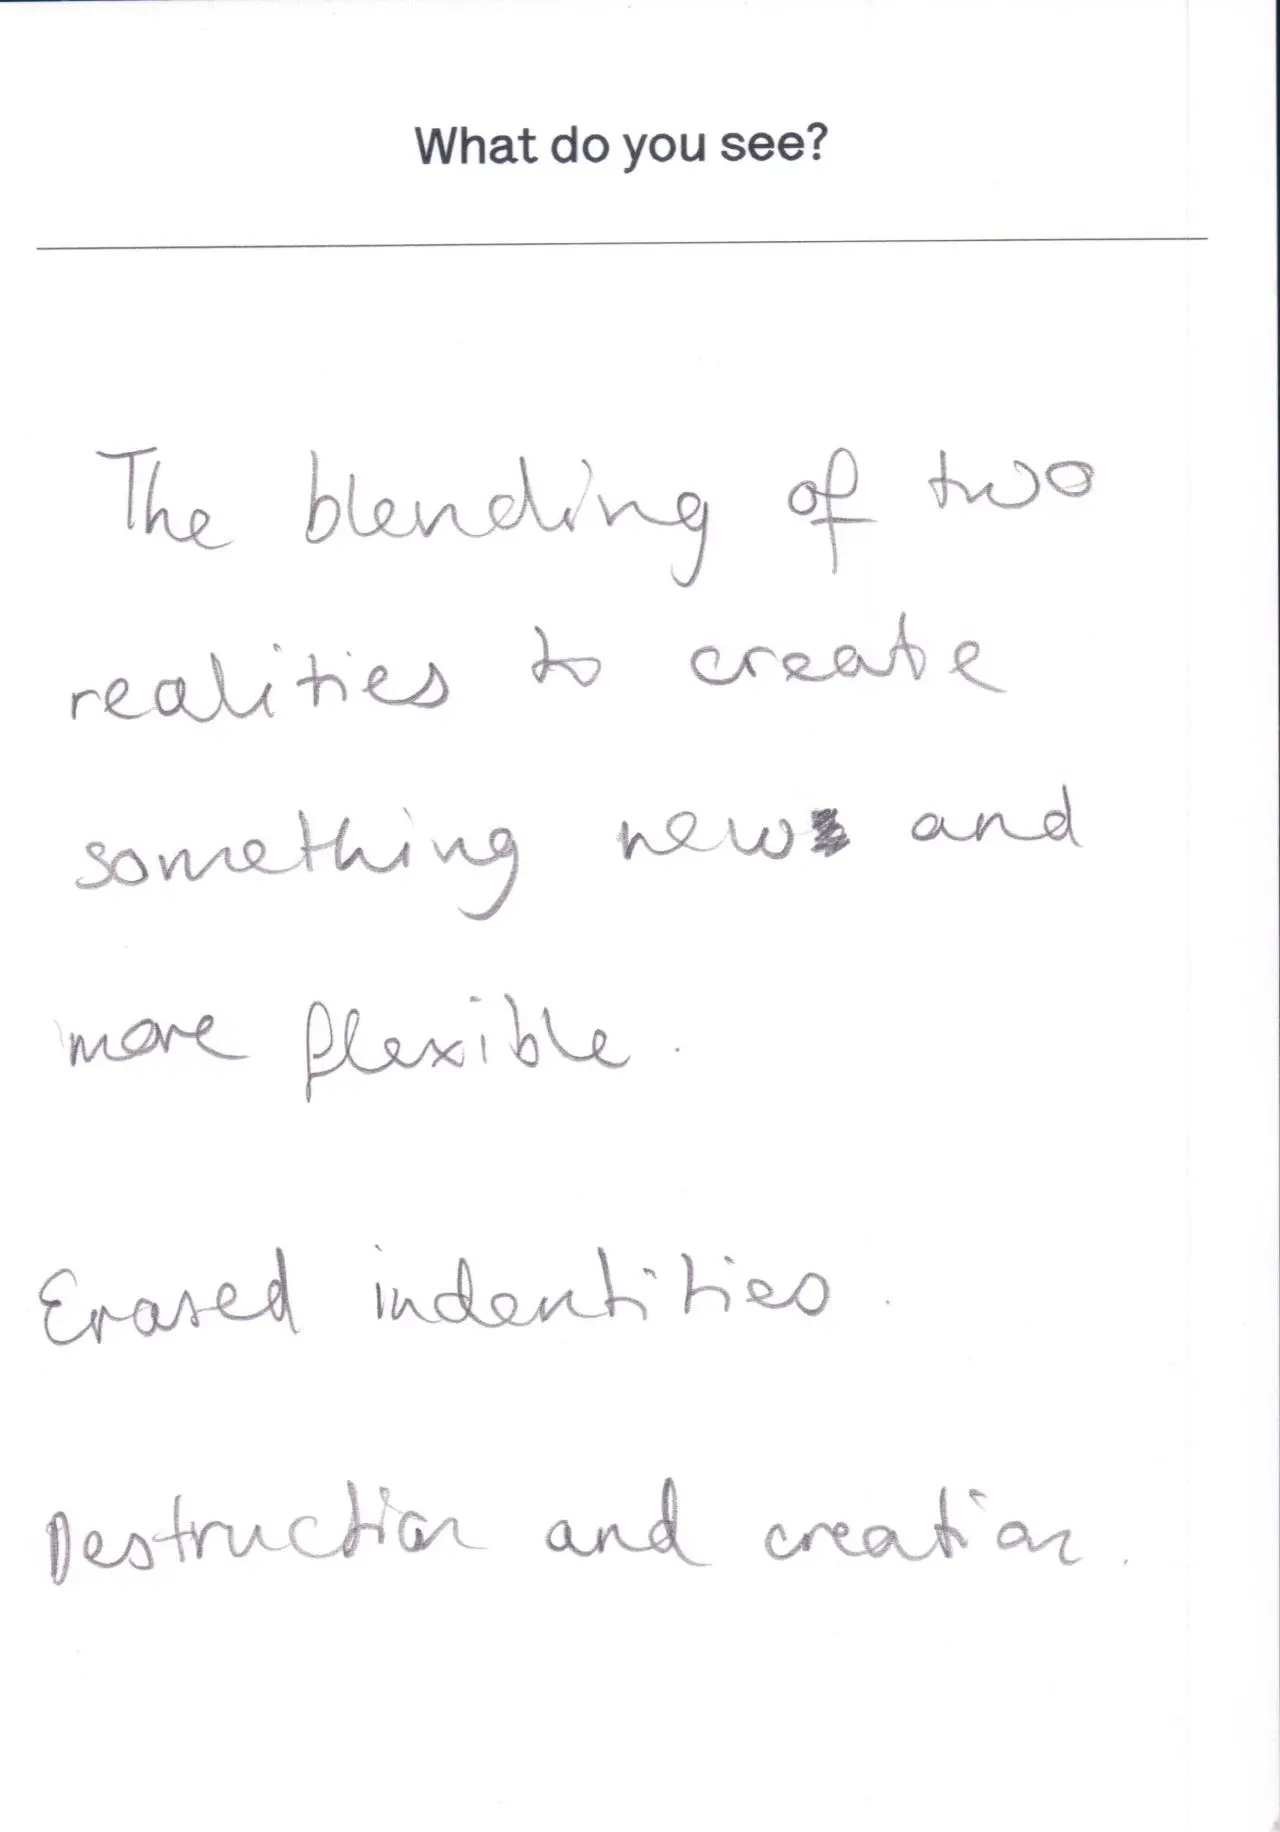 What do you see?
The blending of two
realities to create
something new and
more flexible.
Erased indentities.
Destruction and creation.